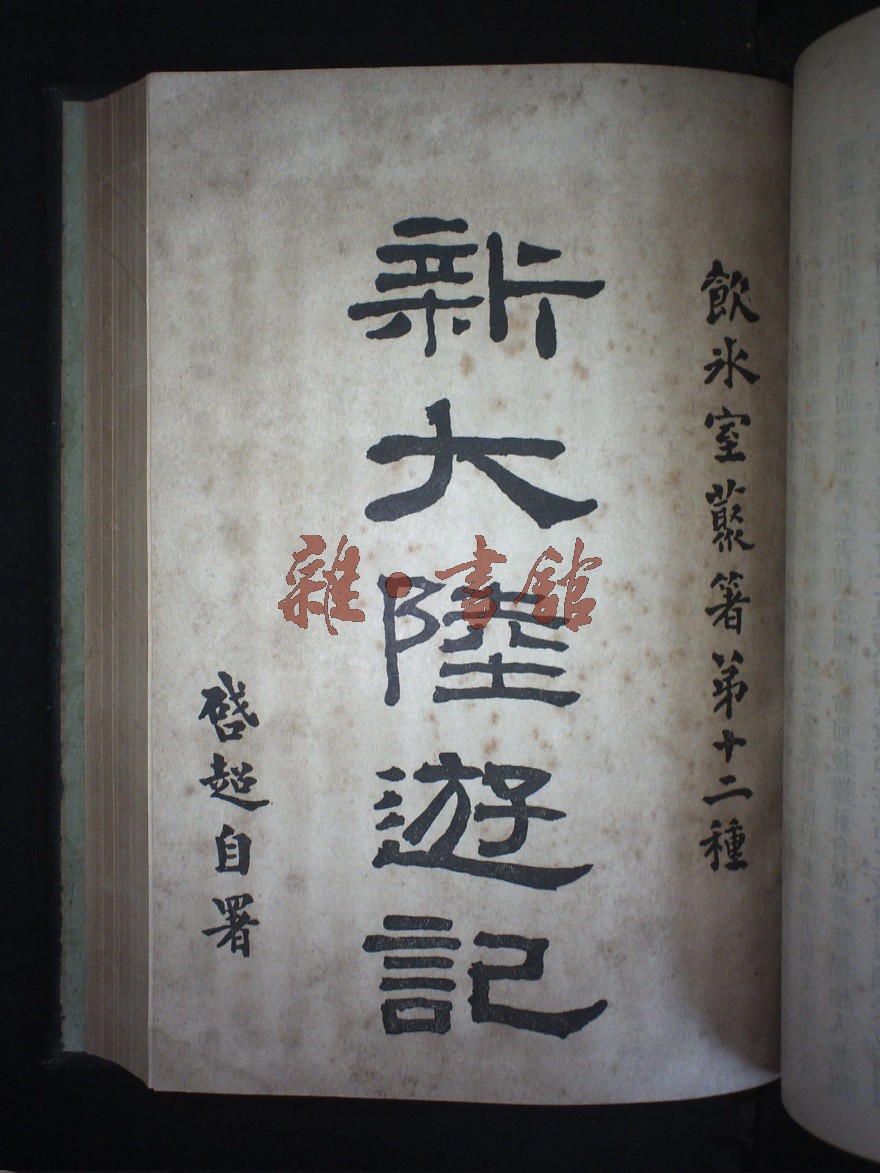 飲氷室叢著第十二種
新大陸遊記
啓超自署
雜·書館